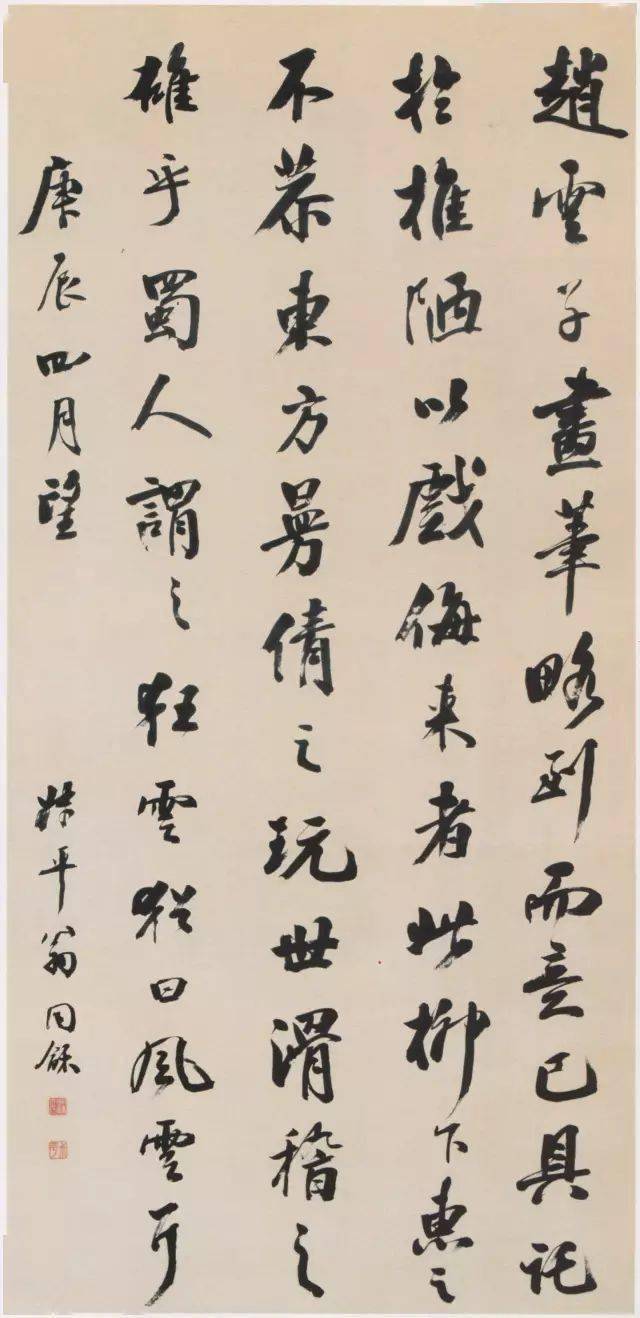 趙雲子畫筆略到而意已具託
於椎陋以戲侮来者此柳下惠之
不恭東方曼倩之玩世滑稽之
雄乎蜀人謂之狂雲猶曰風雲耳
庚辰四月望
叔平翁同龢